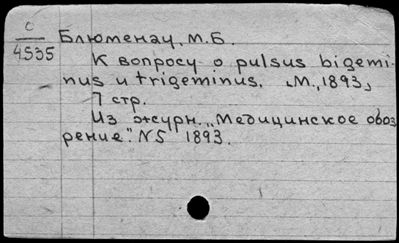 С
4535
Блюменау, М.Б.
К вопросу о pulsus bigemi-
nus и trigeminus. М., 1893,
7 стр.
Из журн. "Медицинское обоз
рение". N5 1893.